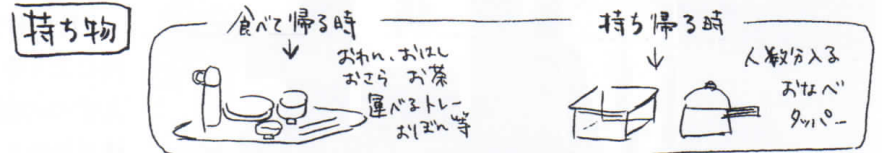 持ち物
食べて帰る時
おわん、おはし
おさら お茶
運べるトレー
おぼん等
持ち帰る時
人数分入る
おなべ
タッパー